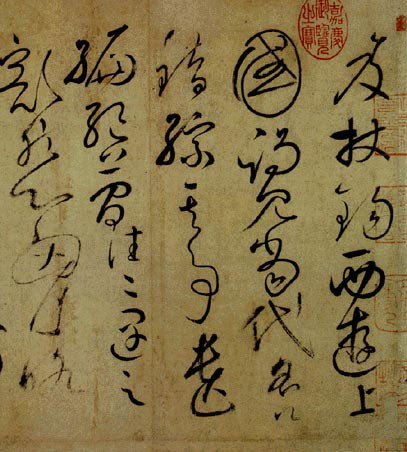 嘉慶御覽之寶
笈杖錫西遊上
國謁見當代名公
錯綜其事遺
編絕簡往往遇之
豁然心胸略